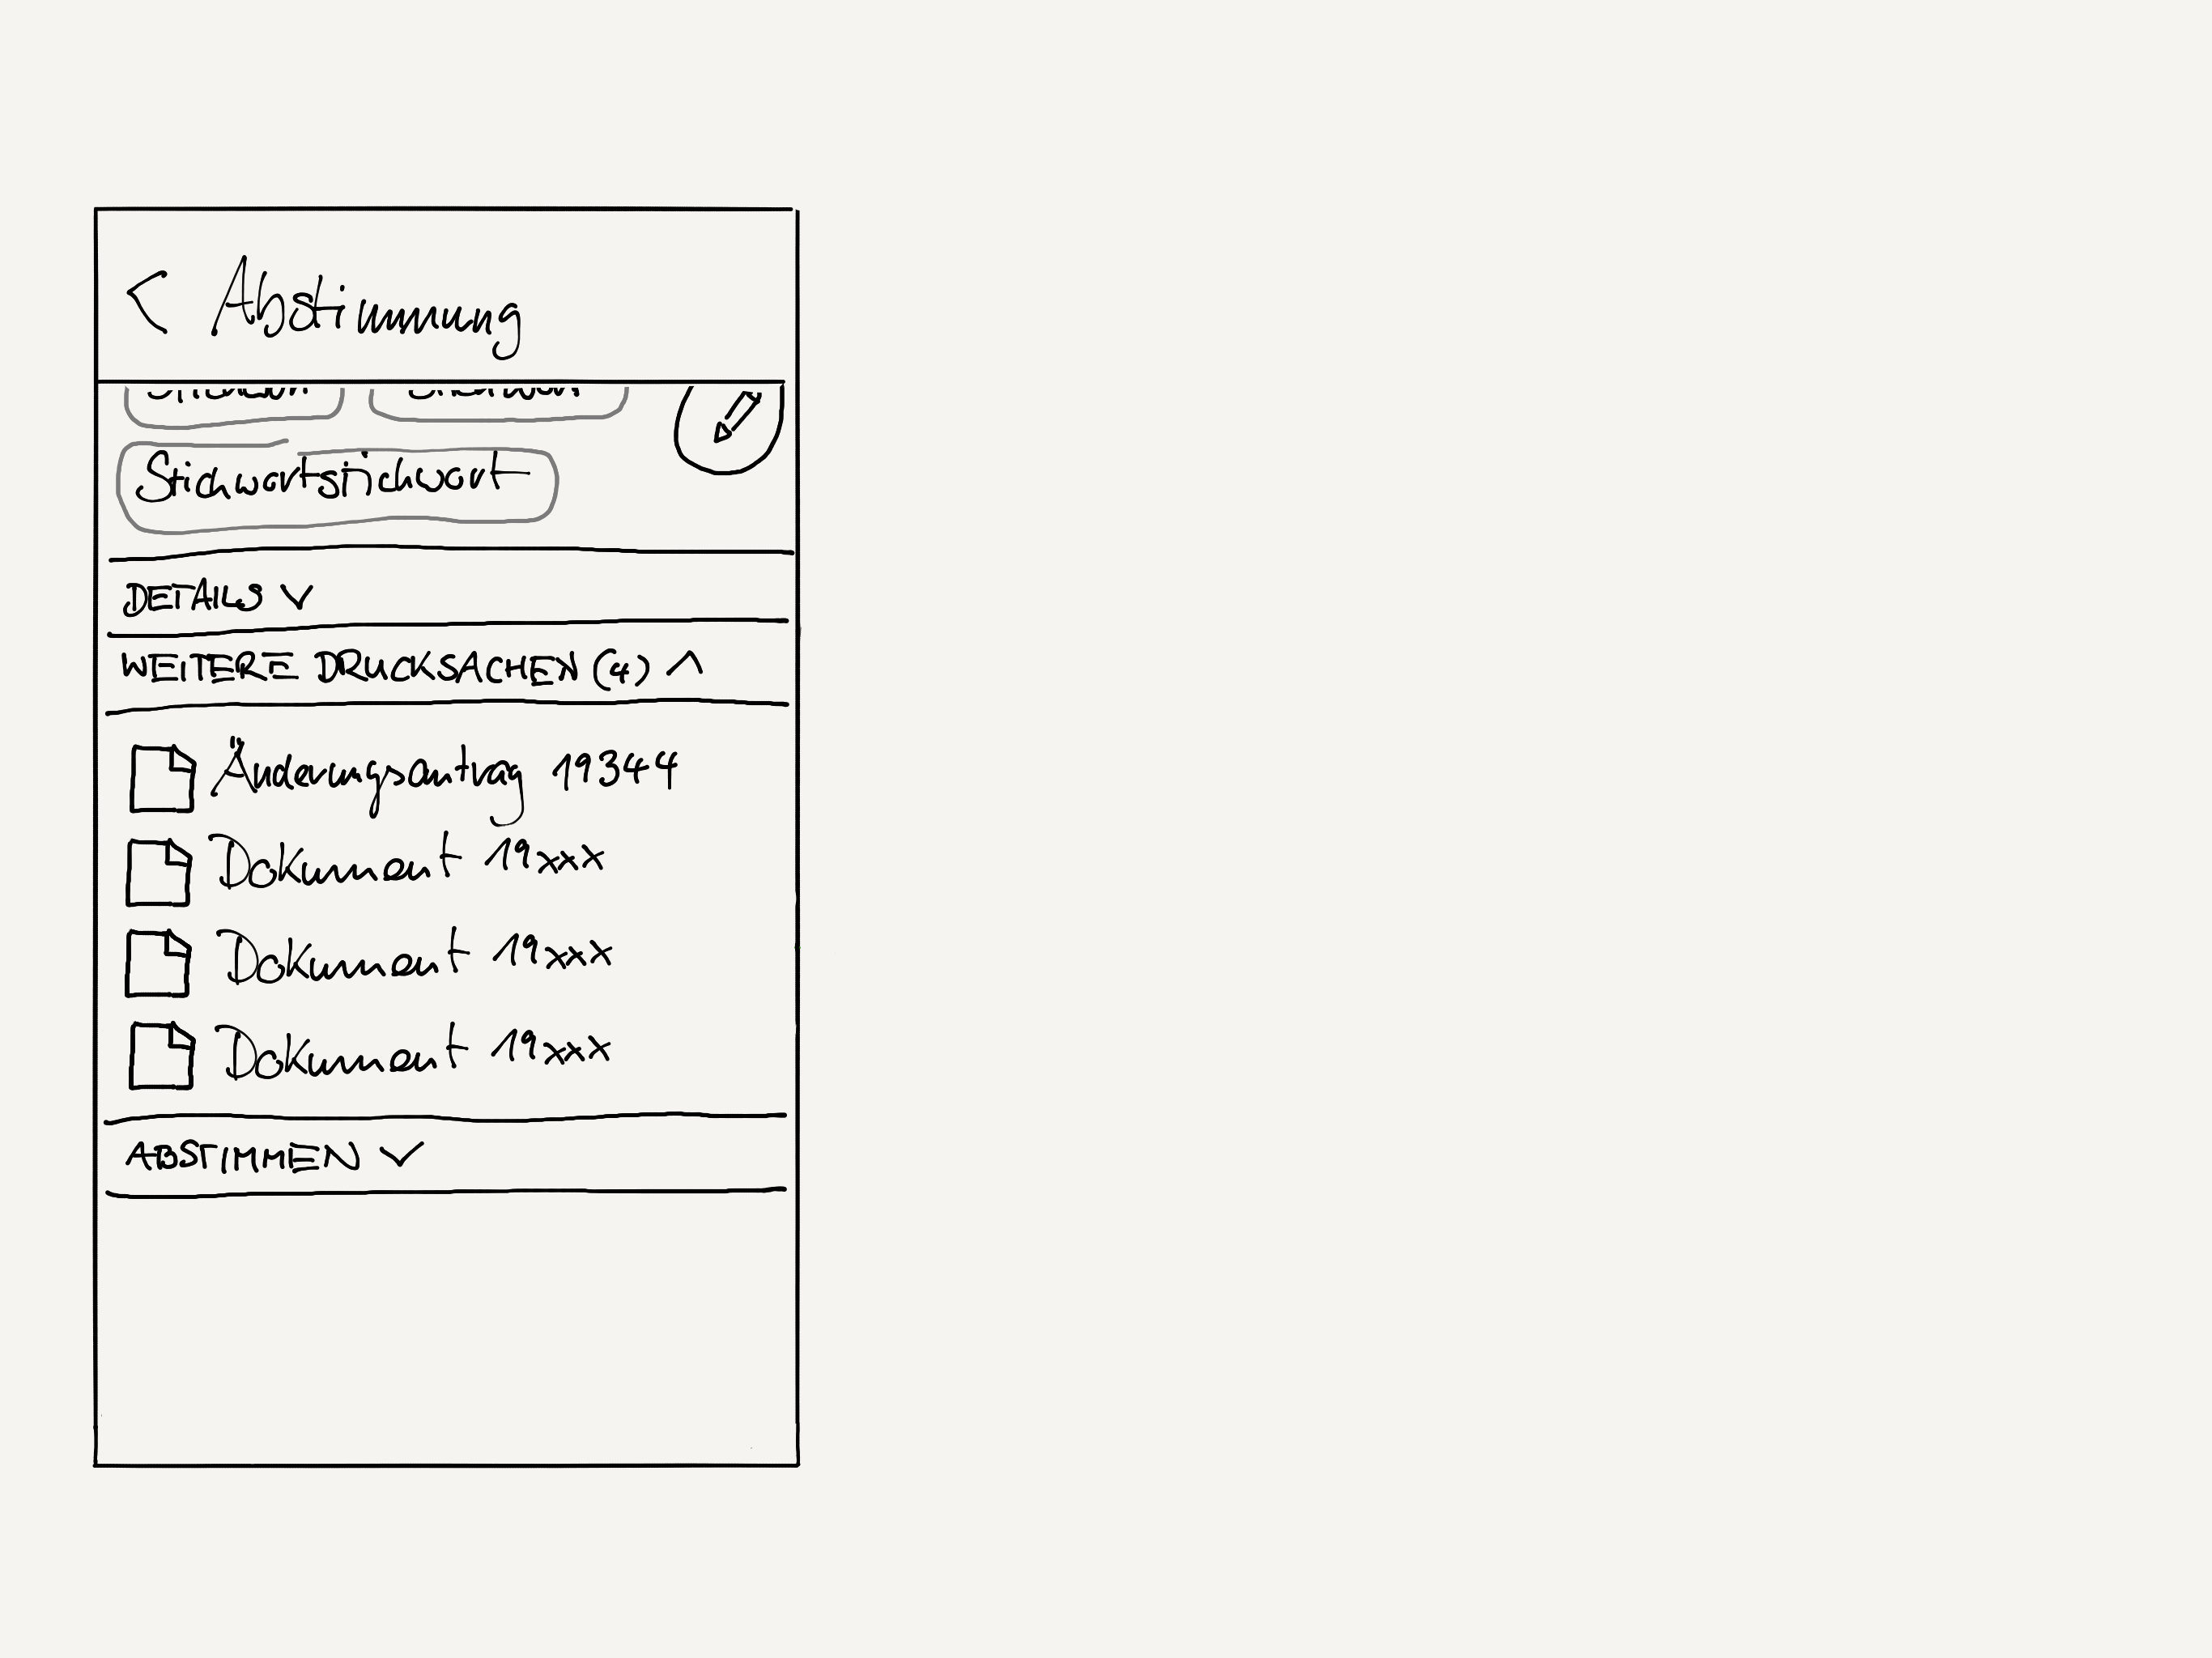 Abstimmung
Stichwortstichwort
DETAILS
WEITERE DRUCKSACHEN (4)
Änderungsantrag 19344
Dokument 19xxx
Dokument 19xxx
Dokument 19xxx
ABSTIMMEN